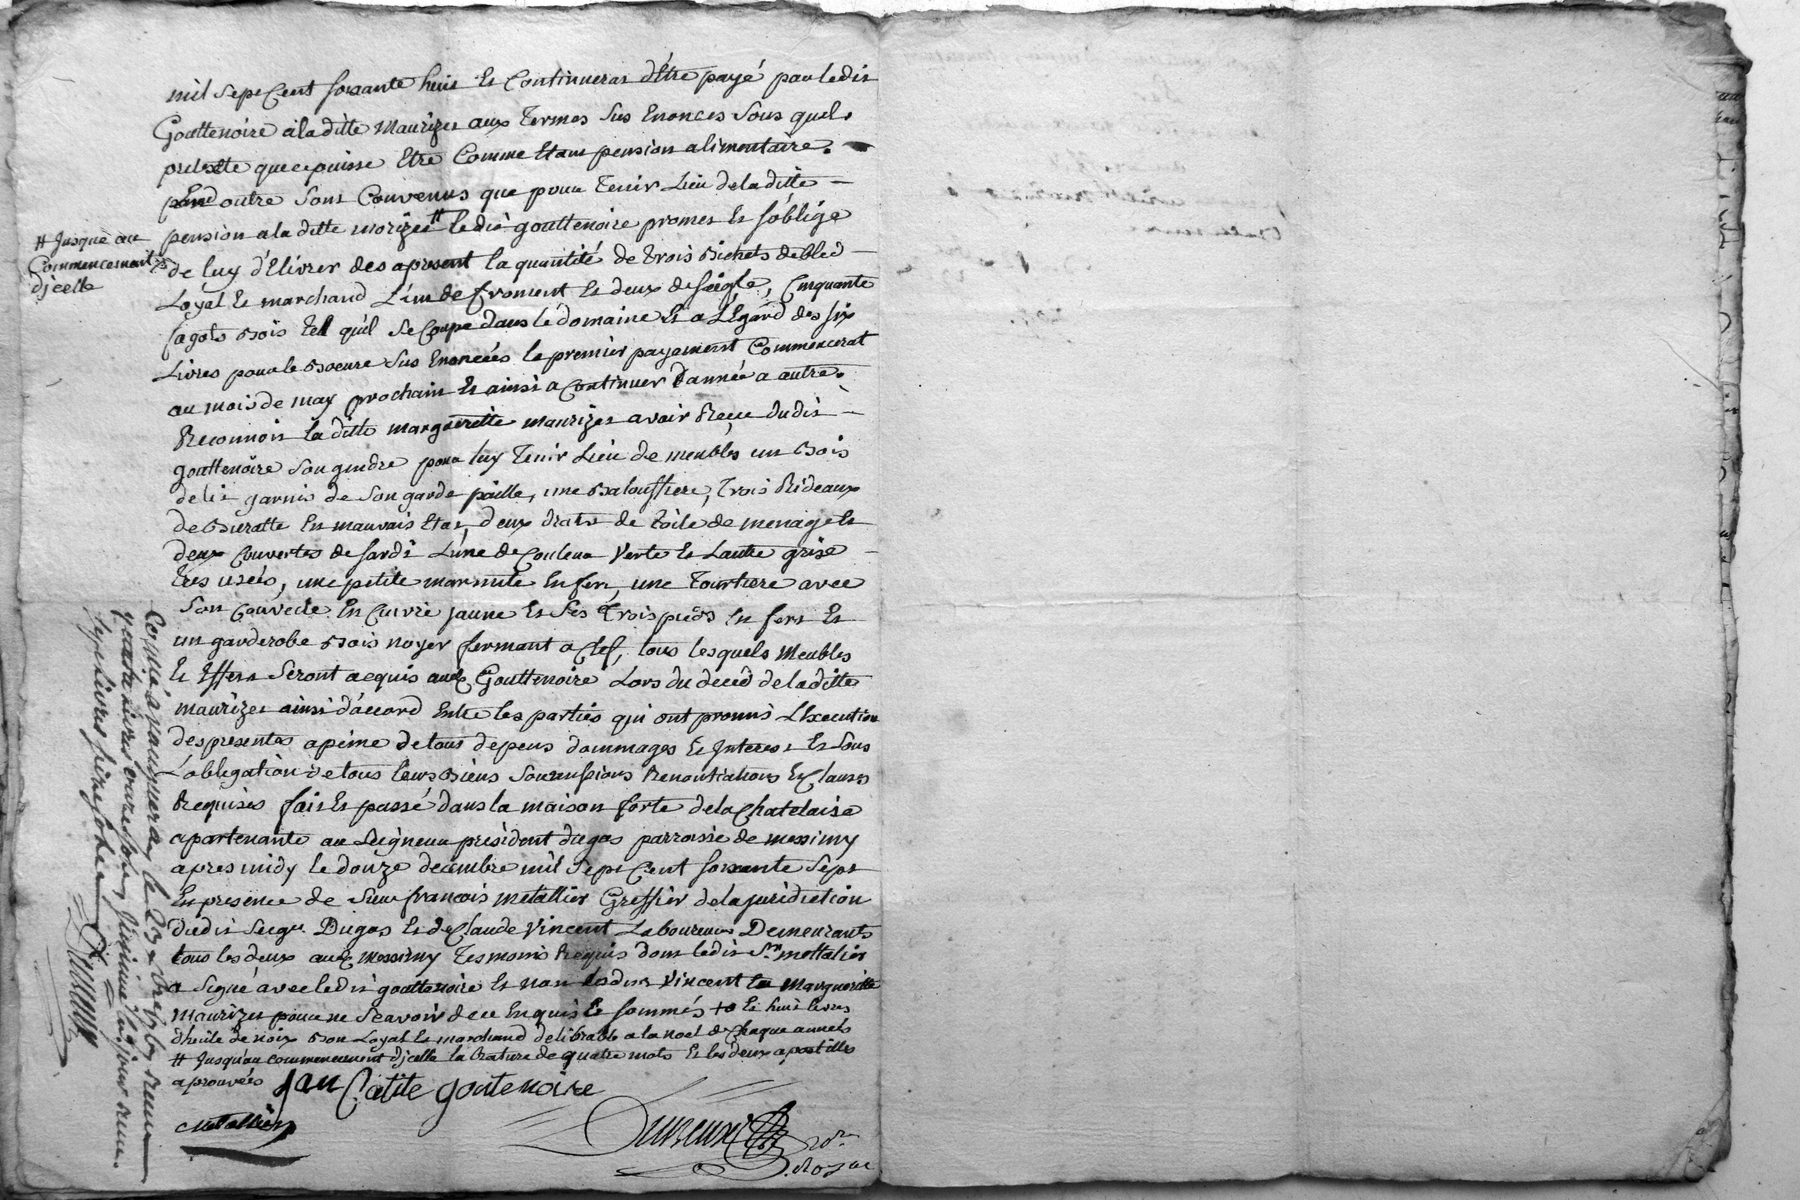 mil Sept Cent soixante huit Et Continueras dEtre payé par ledit
Gouttenoire a la ditte Maurizes aux Termes Sus Enonces Sous quel
pretexte que ce puisse Etre Comme Etant pension alimentaire.
outre Sont Convenus que pour Tenir Lieu de la ditte
pension a la ditte morizes # ledit gouttenoire promet Et s'oblige
# Jusque au
Commencement
d'jcelle
de luy d'Elivrer des apresent la quantité de trois Bichets de bled
Loyal Et marchand L'un de froment Et deux de seigle, Cinquante
fagots Bois Tel quil Se Coupe dans le domaine Et a L'Egard des six
Livres pour le Boeure Sus Enoncées le premier payement Commencerat
au mois de may prochain Et ainsi a Continuer d'année a autre.
Reconnoit la ditte margueritte maurizes avoir Reçue dudit
gouttenoire Son gendre pour luy Tenir Lieu de meubles un Bois
de lit garnis de Son garde paille, une Balouffiere, Trois Rideaux
de Buratte En mauvais Etat, deux drats de toile de menage Et
deux Couvertes de Sardi L'une de Couleur Verte Et Lautre grise
tres usées, une petite marmitte En fer, une Tourtiere avec
Son Couvecle En Cuivre jaune Et Ses Trois pieds En fert Et
un garderobe Bois noyer fermant a Clef, tous lesquels Meubles
Et Effets Seront acquis audt Gouttenoire Lors du decéd de la ditte
maurizes ainsi d'accord Entre les parties qui ont promis L'Execution
des presentes a peine de tous depens dommages Et Interest Et Sous
L'obligation de tous leurs Biens Soumissions Renontiations Et Clauses
Requises fait Et passé dans la maison forte de la Chatelaise
apartenante au Seigneur president dugas parroisse de messimy
apres midy le douze decembre mil Sept Cent soixante Sept
En presence de Sieur françois metallier Greffier de la juridiction
dudit Seigr Dugas Et de Claude Vincent Laboureur Demeurants
tous les deux audt messimy Tesmoins Requis dont ledit Sr mettalier
a Signé avec ledit gouttenoire Et non ledit Vincent Marguerite
Maurizes pour ne Scavoir de ce Enquis Et Sommés + Et huit livres
d'huile de noix Bon Loyal Et marchand delibrable a la noel de Chaque année
# Jusqu'au commencement d'jcelle la rature de quatre mots Et les deux apostilles
aprouvées Jan Catite goutenoire
Metallier
Controlé a vaugneray le 23 Xbre 1767 Reçu
quatre livres onze sols,